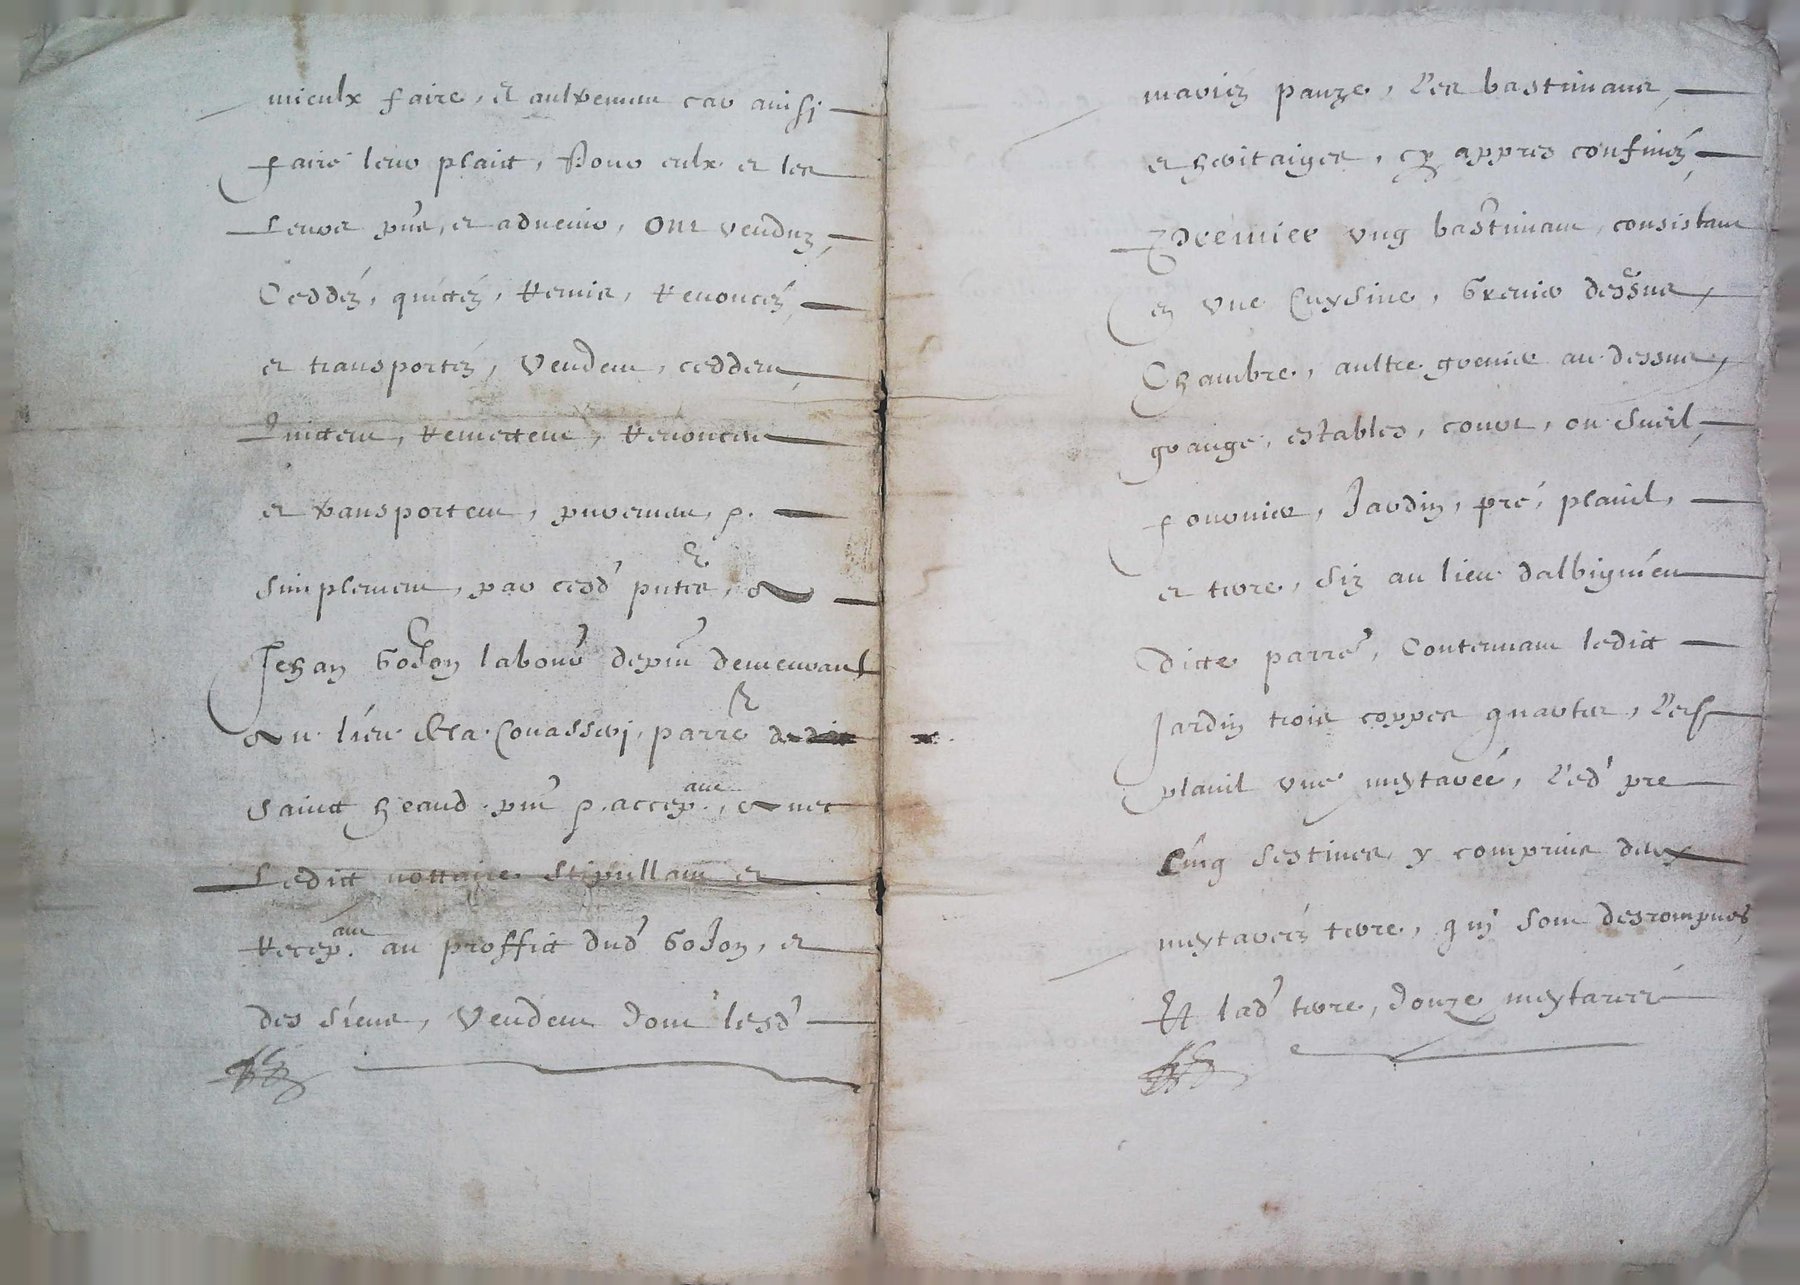 mieulx faire, et aultrement car ainsi
faire leur plaict, Pour eulx et les
Leurs pns, et advenir, Ont venduz,
Ceddéz, quittéz, Remis, Renoncéz,
et transportéz, Vendent, ceddent,
Quittent, Remettent, Renoncent
et transportent, purement, &.
simplement, par cesd' pntes, A
Jehan Goion labour' depnt demeurant
Au lieu de la Couasserj, parre de
Sainct heaud pnt & accepant, et
Ledict nottaire stipullant et
Recepant au proffict dud' Goion, et
des siens, Vendent dont lesd'
mariéz pauze, Les bastimans,
et heritaiges, cy appres confinéz,
Premier ung bastiment, consistant
en une Cuysine, Grenier dessus,
Chambre, aultre grenier au dessus,
grange, estables, court, ou sueil,
fournier, Jardin, pré, planil,
et terre, siz au lieu dalbignieu
dicte parre, Contenant ledict
Jardin trois coppes quartes, Led
planil une meytarée, Led' pre
Cinq sestives y comprins deux
meytaréés terre, quj sont desrompues,
Et lad' terre, douze meytareé